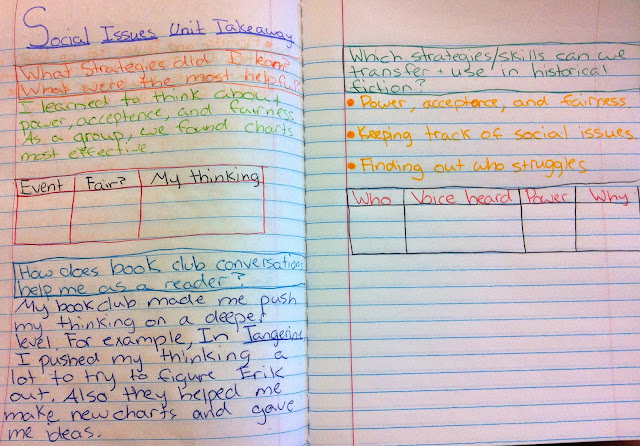 Social Issues Unit Takeaway
What strategies did I learn?
What were the most helpful?
I learned to think about
power, acceptence, and fairness.
As a group, we found charts
most effective
Event Fair? My thinking
How does book club conversations
help me as a reader?
My book club made me push
my thinking on a deeper
level. For example, In Tangerine,
I pushed my thinking a
lot to try to figure Erik
out. Also they helped me
make new charts and gave
me ideas.
Which strategies/skills can we
transfer + use in historical
fiction?
• Power, acceptance, and fairness
• Keeping track of social issues.
• Finding out who struggles
Who Voice heard Power Why